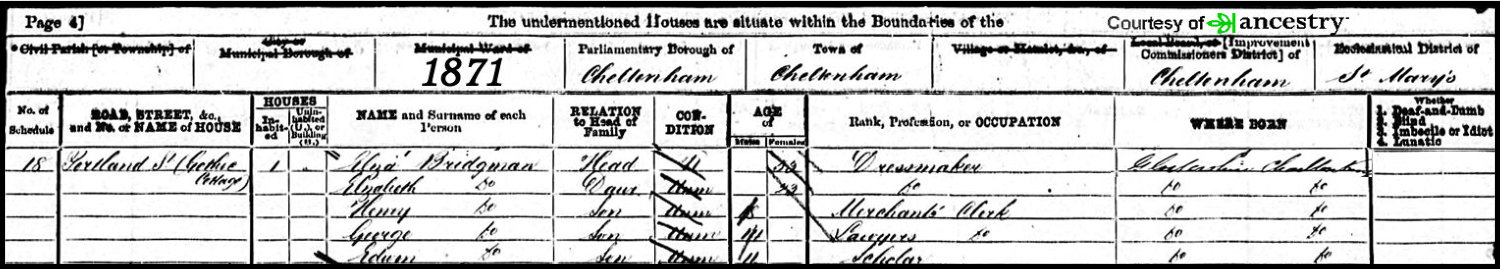 Page 4] The undermentioned Houses are situate within the Boundaries of the Courtesy of ancestry
Civil Parish [or Township] of City or Municipal Borough of Municipal Ward of Parliamentary Borough of Town of Village or Hamlet, &c., of Local Board, or [Improvement Commissioners District] of Ecclesiastical District of
1871 Cheltenham Cheltenham Cheltenham St Mary's
No. of Schedule ROAD, STREET, &c., and No. or NAME of HOUSE HOUSES In-habit-ed Unin-habited (U.), or Building (B.) NAME and Surname of each Person RELATION to Head of Family CON-DITION AGE of Males Females Rank, Profession, or OCCUPATION WHERE BORN Whether 1. Deaf-and-Dumb 2. Blind 3. Imbecile or Idiot 4. Lunatic
18 Portland St (Gothic Cottage) 1 Eliza Bridgman Head Dressmaker Gloucestershire Cheltenham
Elizabeth Do Daur Unm 23 Do Do Do
Henry Do Son Unm Merchants Clerk Do Do
George Do Son Unm Lawyers Do Do Do
Edwin Do Son Unm Scholar Do Do